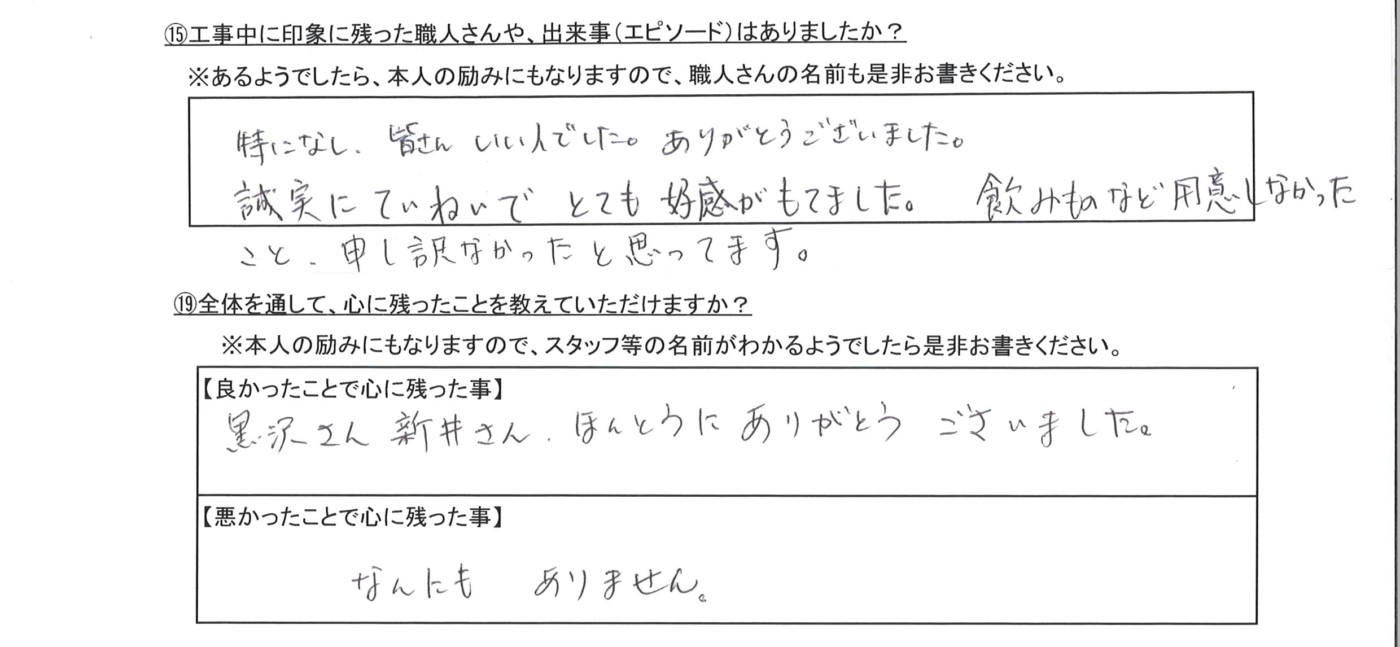 ⑮工事中に印象に残った職人さんや、出来事(エピソード)はありましたか？
※あるようでしたら、本人の励みにもなりますので、職人さんの名前も是非お書きください。
特になし、皆さん いい人でした。ありがとうございました。
誠実にていねいで とても 好感がもてました。 飲みものなど用意しなかった
こと、申し訳なかったと思ってます。
⑲全体を通して、心に残ったことを教えていただけますか？
※本人の励みにもなりますので、スタッフ等の名前がわかるようでしたら是非お書きください。
【良かったことで心に残った事】
黒沢さん 新井さん、ほんとうに ありがとう ございました。
【悪かったことで心に残った事】
なんにも ありません。